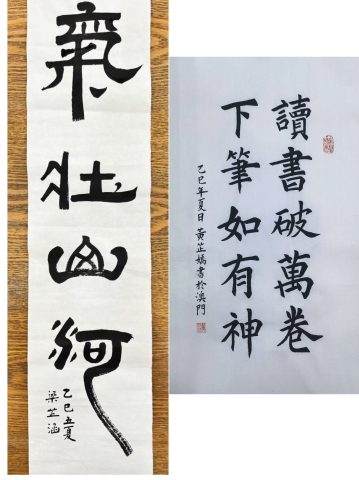 氣壯山河
乙巳立夏
梁芷涵
讀書破萬卷
下筆如有神
乙巳年夏日 黃芷嫣書於澳門